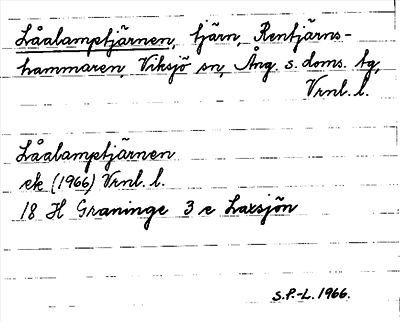 Låalamptjärnen, tjärn, Rentjärns-
hammaren Viksjö sn, Ång. s. doms. tg,
Vrnl. l.
Låalamptjärnen
ek (1966) Vrnl. l.
18 H Graninge 3 e Laxsjön
S.P.-L. 1966.